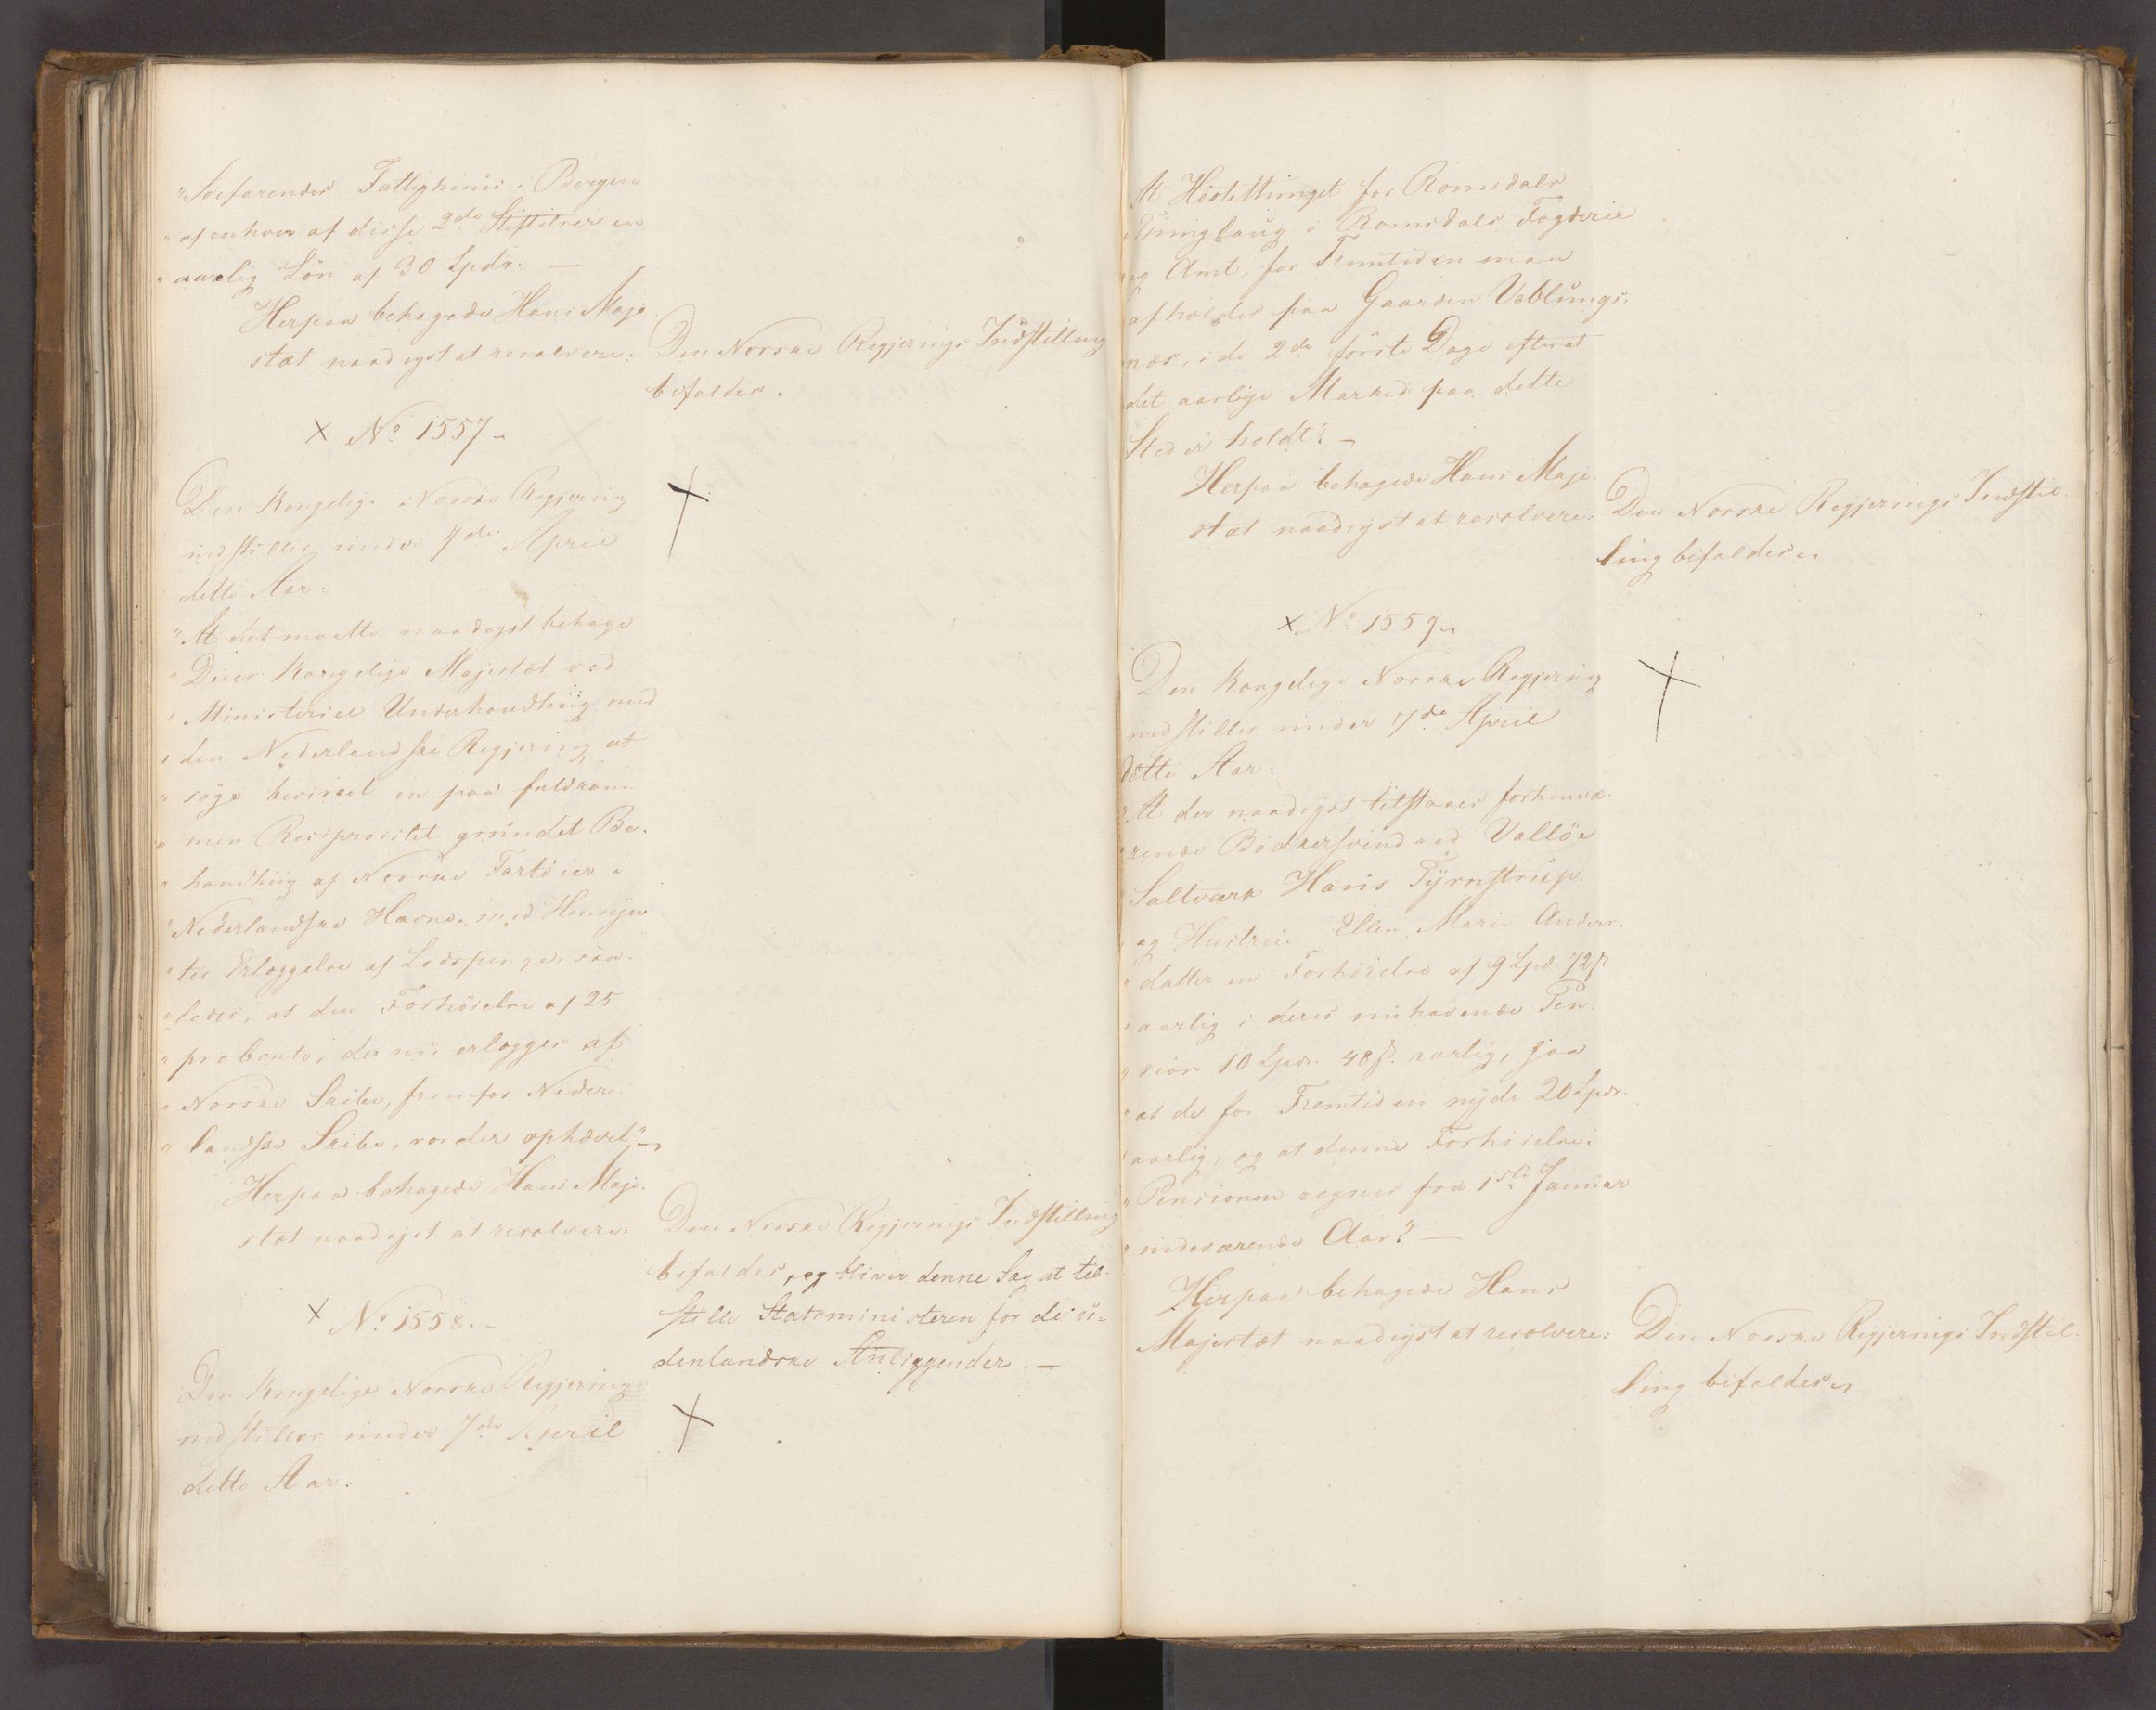 "Söefarendes Fattighuus i Bergen
"af enhver af disse 2de Stiftelser en
"aarlig Lön af 30 Spdr. —
Herpaa behagede Hans Maje-
stæt naadigst at resolvere:
Den Norske Regjerings Indstilling
bifaldes.
× No 1557.
Den Kongelige Norske Regjering
indstiller under 7de April
dette Aar:
"At det maatte naadigst behage
"Deres Kongelige Majestæt ved
"Ministeriel Underhandling med
"den Nederlandske Regjering at
"söge bevirket en paa fuldkom-
"men Reciprocitet grundet Be-
"handling af Norske Fartöier i
"Nederlandske Havne, med Hensyn
"til Erlæggelse af Lodspenge, saa-
"ledes, at den Forhöielse af 25
"procento, der nu erlægges af
"Norske Skibe, fremfor Neder-
"landske Skibe, vorder ophævet."
Herpaa behagede Hans Maje-
stæt naadigst at resolvere:
Den Norske Regjerings Indstilling
bifaldes, og bliver denne Sag at til-
stille Statsministeren for de u-
denlandske Anliggender. —
× No 1558. —
Den Kongelige Norske Regjering
indstiller under 7de April
dette Aar:
"At Höstethinget for Romsdals
"Thinglaug i Romsdals Fogderie
"og Amt, for Fremtiden maa
"afholdes paa Gaarden Vablungs-
"næs, i de 2de förste Dage efterat
det aarlige Marked paa dette
Sted er holdt". —
Herpaa behagede Hans Maje-
stæt naadigst at resolvere:
Den Norske Regjerings Indstil-
ling bifaldes.
× No 1559.
Den Kongelige Norske Regjering
indstiller under 7de April
dette Aar:
"At der naadigst tilstaaes forhenvæ-
"rende Bödkersvend ved Vallöe
"Saltværk Hans Tyrnstrup
"og Hustrue Ellen Marie Anders-
"datter en Forhöielse af 9 Spd. 72 ß
"aarlig i deres nu havende Pen-
"sion 10 Spdr. 48 ß. aarlig, saa
"at de for Fremtiden nyde 20 Spdr.
"aarlig, og at denne Forhöielse i
"Pensionen regnes fra 1ste Januar
"indeværende Aar". —
Herpaa behagede Hans
Majestæt naadigst at resolvere:
Den Norske Regjerings Indstil-
ling bifaldes.